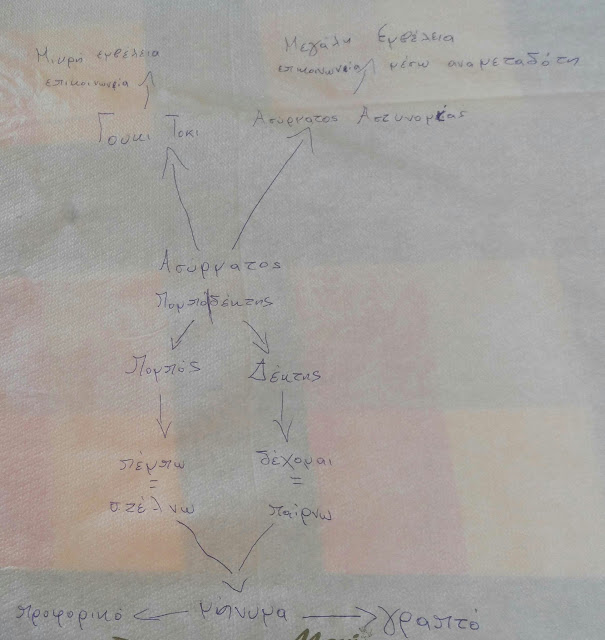 Μικρή εμβέλεια
επικοινωνία
Μεγάλη Εμβέλεια
επικοινωνία μέσω αναμεταδότη
Γουκι Τοκι
Ασύρματος Αστυνομίας
Ασύρματος
Πομποδέκτης
Πομπός
Δέκτης
πέμπω
=
στέλνω
δέχομαι
=
παίρνω
προφορικό
μήνυμα
γραπτό